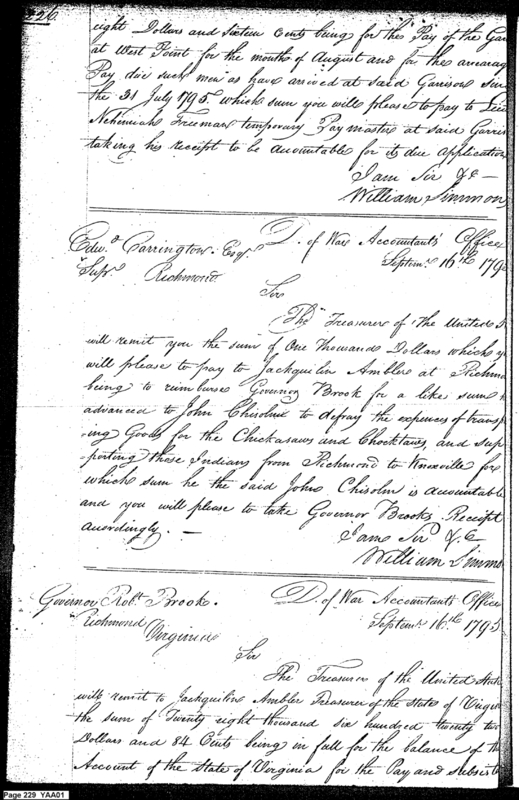 226.
eight Dollars and sixteen Cents being for the Pay of the Garr
at West Point for the months of August and for the arrearag
Pay due such men as have arrived at said Garrison sin
the 31 July 1795. which sum you will please to pay to Lieu
Nehemiah Freeman temporary Paymaster at said Garris
taking his receipt to be accountable for its due application
I am Sir &c —
William Simmon
Edw.d Carrington Esqr. D. of War Accountants Office
Supr. Richmond Septemr. 16th 179
Sir
The Treasurer of the United S
will remit you the sum of One thousand Dollars which y
will please to pay to Jackquilin Ambler at Richmo
being to reimburse Governor Brook for a like sum
advanced to John Chisolm to defray the expences of transp
-ing Goods for the Chickasaws and Chocktaws, and sup
-porting those Indians from Richmond to Knoxville for
which sum he the said John Chisolm is accountabl
and you will please to take Governor Brooks Receipt
accordingly. —
I am Sir &c
William Simmo
Governor Robt. Brook. D. of War Accountants Office
Richmond Septemr. 16th. 1795
Virginia
Sir
The Treasurer of the United State
will remit to Jackquilin Ambler Treasurer of the State of Virgin
the sum of Twenty eight thousand six hundred twenty two
Dollars and 84 Cents being in full for the balance of th
Account of the State of Virginia for the Pay and subsist
Page 229 YAA01